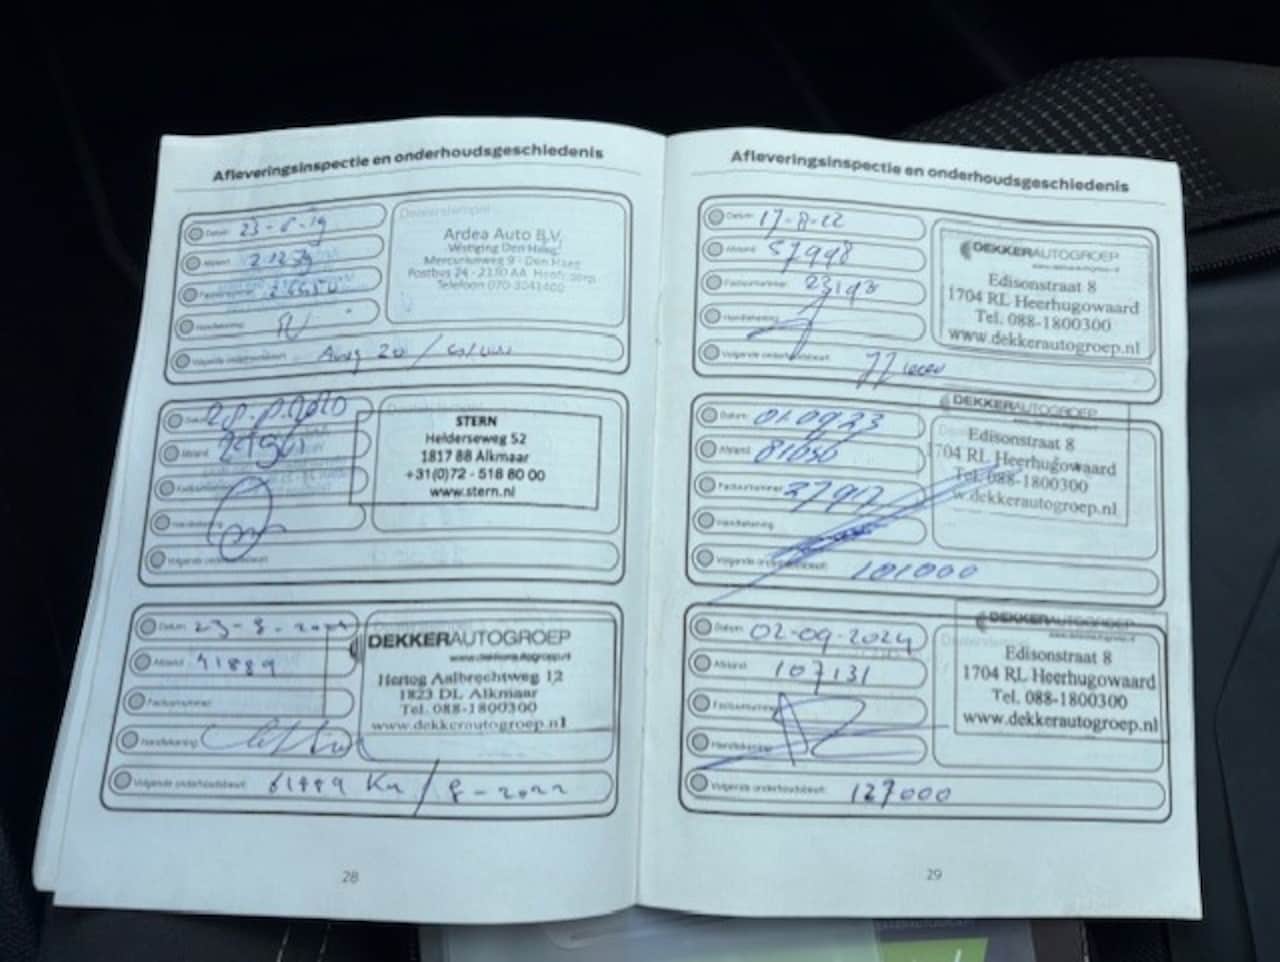 Afleveringsinspectie en onderhoudsgeschiedenis
Datum:
Afstand:
Handtekening:
Volgende onderhoudsbeurt:
Aug 20 /
Ardea Auto B.V.
Vestiging Den Haag
Mercuriusweg 9 - Den Haag
Telefoon 070-3041400
Datum:
Afstand:
Handtekening:
Volgende onderhoudsbeurt:
STERN
Helderseweg 52
1817 BB Alkmaar
+31(0)72 - 518 80 00
www.stern.nl
Datum: 23-8-2021
Afstand: 41889
Factuurnummer:
Handtekening:
Volgende onderhoudsbeurt: 61889 Km / 8-2022
DEKKERAUTOGROEP
www.dekkerautogroep.nl
Hertog Aalbrechtweg 12
1823 DL Alkmaar
Tel. 088-1800300
www.dekkerautogroep.nl
28
Afleveringsinspectie en onderhoudsgeschiedenis
Datum: 17-8-22
Afstand: 57998
Factuurnummer: 23198
Handtekening:
Volgende onderhoudsbeurt:
DEKKERAUTOGROEP
www.dekkerautogroep.nl
Edisonstraat 8
1704 RL Heerhugowaard
Tel. 088-1800300
www.dekkerautogroep.nl
Datum: 01-09-23
Afstand: 81050
Factuurnummer:
Handtekening:
Volgende onderhoudsbeurt: 101000
DEKKERAUTOGROEP
Edisonstraat 8
1704 RL Heerhugowaard
Tel. 088-1800300
w.dekkerautogroep.nl
Datum: 02-09-2024
Afstand: 107131
Factuurnummer:
Handtekening:
Volgende onderhoudsbeurt: 127000
DEKKERAUTOGROEP
Edisonstraat 8
1704 RL Heerhugowaard
Tel. 088-1800300
www.dekkerautogroep.nl
29